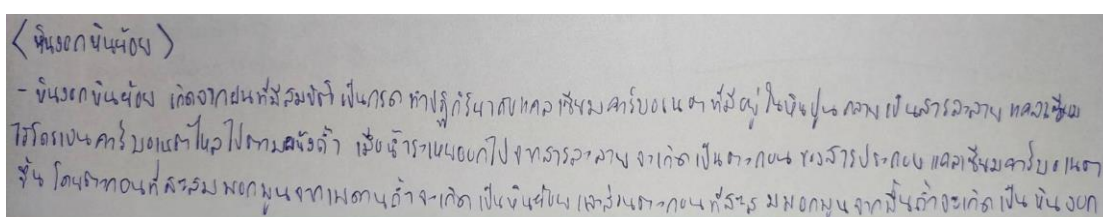 <หินงอกหินย้อย>
- หินงอกหินย้อย เกิดจากฝนที่มีสมบัติเป็นกรด ทำปฏิกิริยากับแคลเซียมคาร์บอเนตที่มีอยู่ในหินปูน กลายเป็นสารละลาย แคลเซียม
ไฮโดรเจนคาร์บอเนตไหลไปตามผนังถ้ำ เมื่อน้ำระเหยออกไปจากสารละลายจะเกิดเป็นตะกอน ของสารประกอบ แคลเซียมคาร์บอเนต
ขึ้น โดยตะกอนที่สะสมพอกพูนจากเพดานถ้ำจะเกิดเป็นหินย้อย และส่วนตะกอนที่สะสมพอกพูนจากพื้นถ้ำจะเกิดเป็น หินงอก